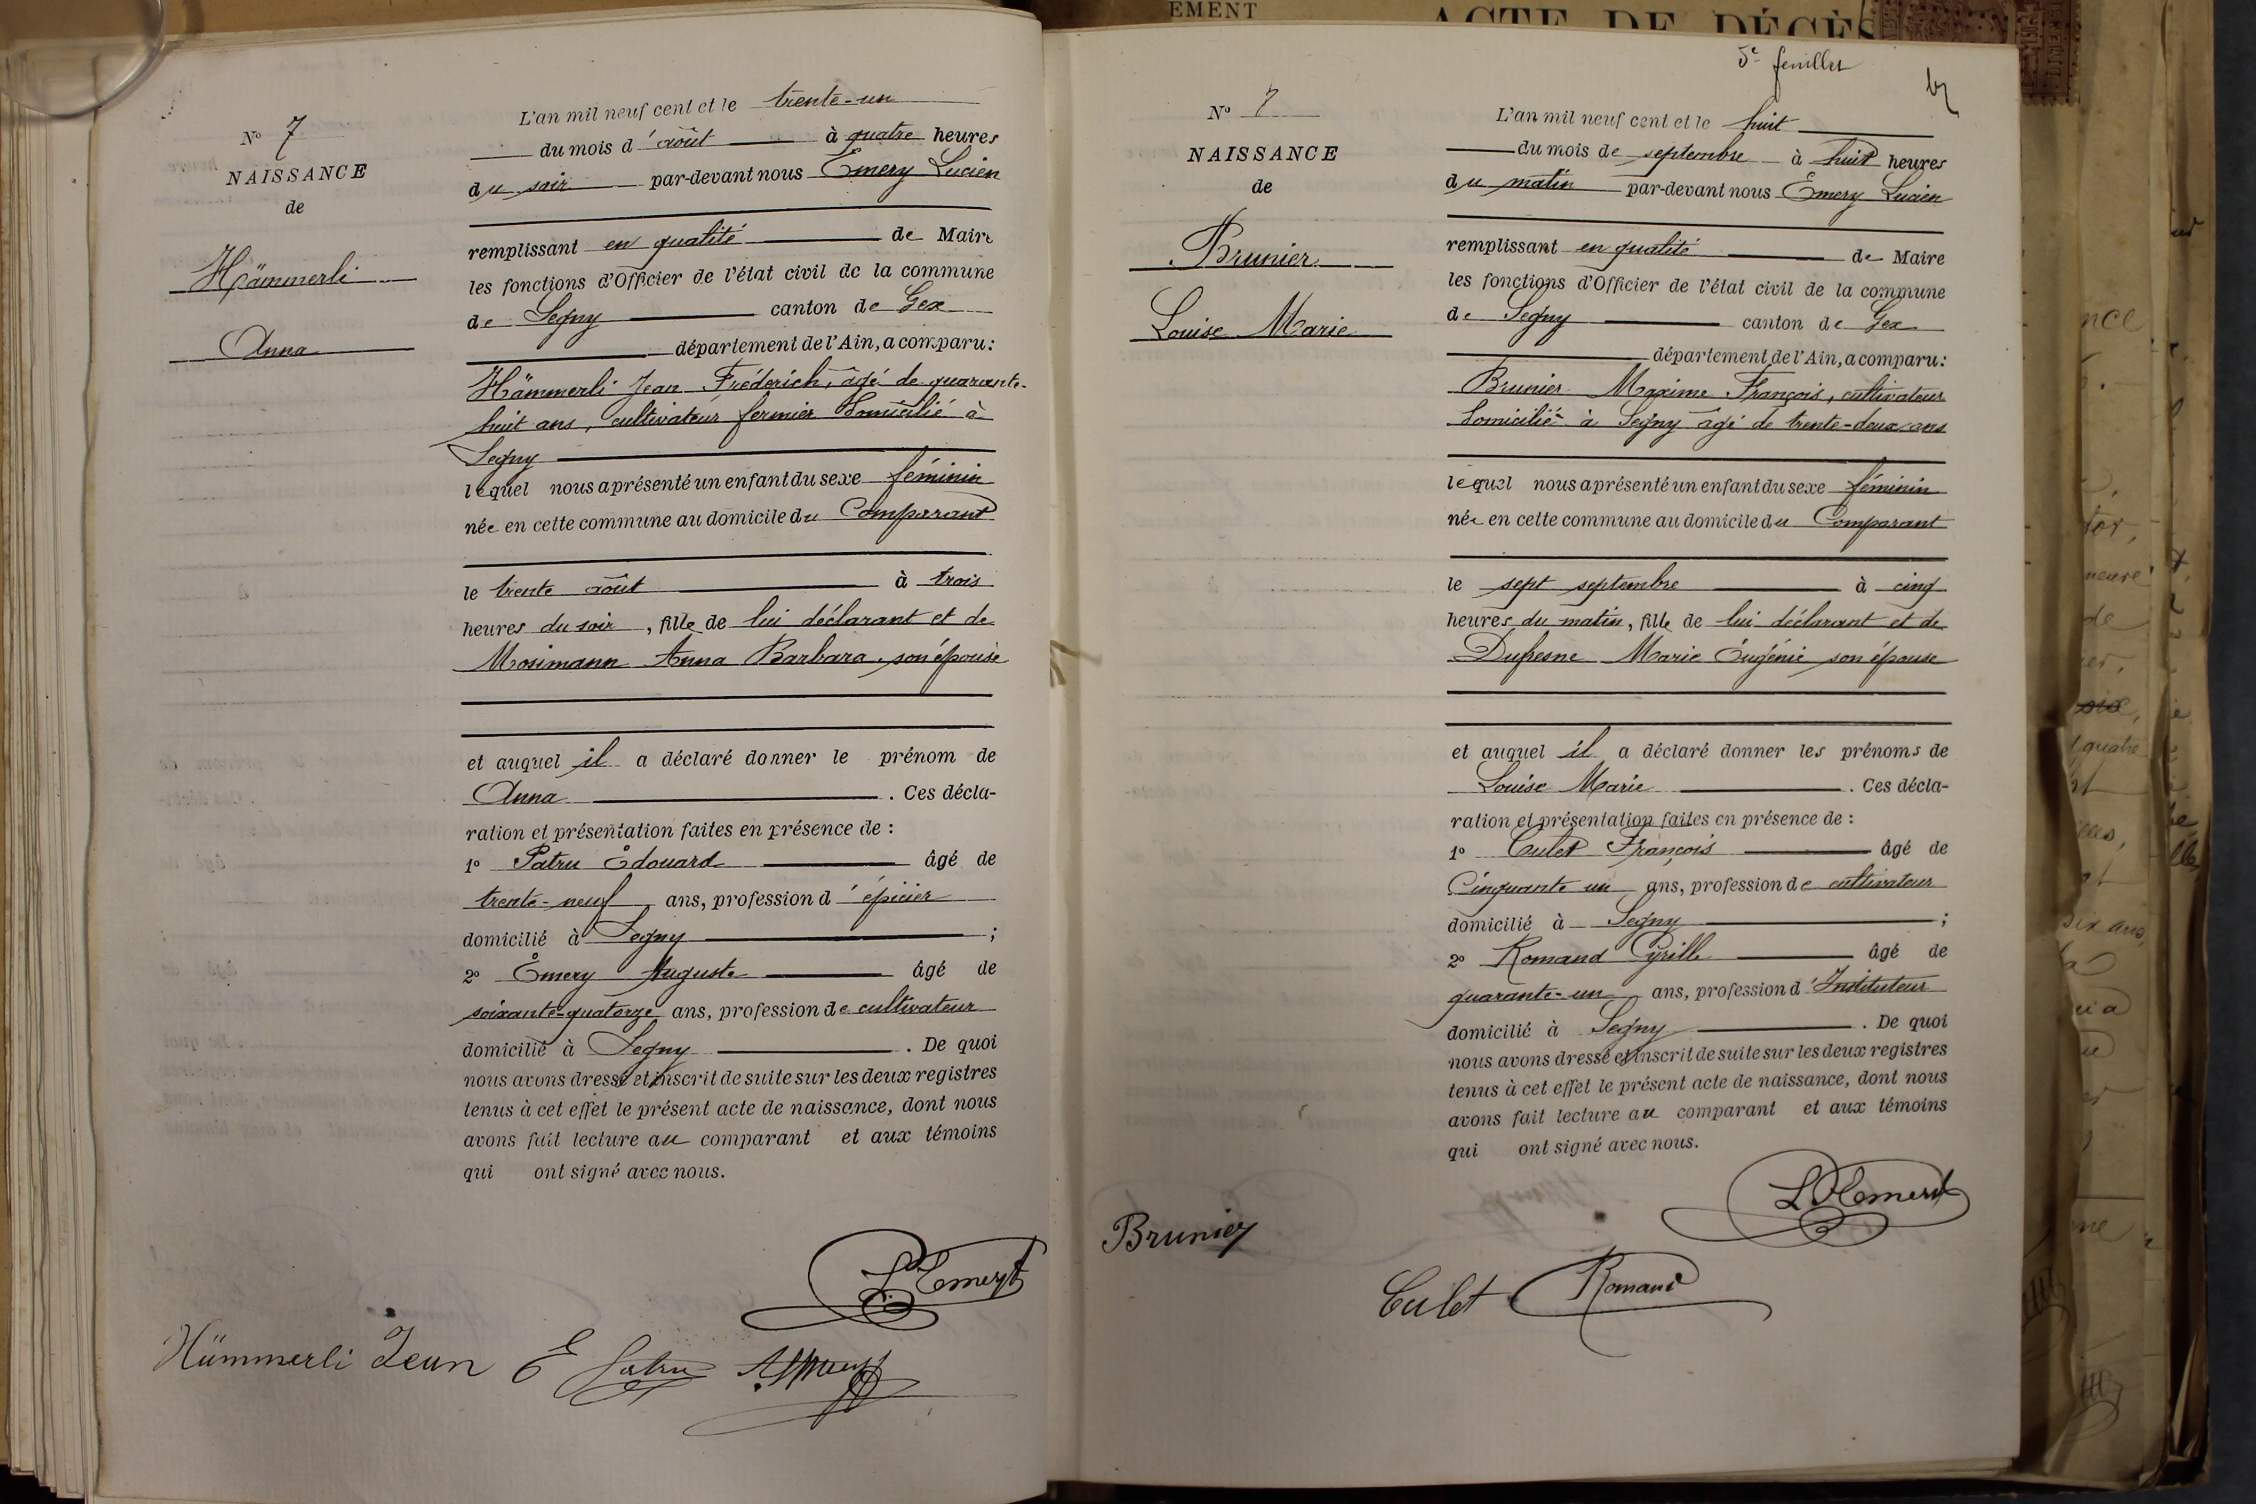 EMENT
ACTE DE DÉCÈS
Nº 7
NAISSANCE
de
Hämmerli
Anna
L'an mil neuf cent et le trente-un
du mois d'août à quatre heures
du soir par-devant nous Émery Lucien
remplissant en qualité de Maire
les fonctions d'Officier de l'état civil de la commune
de Segny canton de Gex
département de l'Ain, a comparu:
Hämmerli Jean Fréderich, âgé de quarante-
huit ans, cultivateur fermier domicilié à
Segny
lequel nous a présenté un enfant du sexe féminin
née en cette commune au domicile du Comparant
le trente août à trois
heures du soir, fille de lui déclarant et de
Mosimann Anna Barbara, son épouse
et auquel il a déclaré donner le prénom de
Anna. Ces décla-
ration et présentation faites en présence de :
1º Patru Édouard âgé de
trente-neuf ans, profession d'épicier
domicilié à Segny ;
2º Émery Auguste âgé de
soixante-quatorze ans, profession de cultivateur
domicilié à Segny. De quoi
nous avons dressé et inscrit de suite sur les deux registres
tenus à cet effet le présent acte de naissance, dont nous
avons fait lecture au comparant et aux témoins
qui ont signé avec nous.
L Emery
Hämmerli Jean E Patru
5e feuillet
Nº 7
NAISSANCE
de
Brunier
Louise Marie
L'an mil neuf cent et le huit
du mois de septembre à huit heures
du matin par-devant nous Émery Lucien
remplissant en qualité de Maire
les fonctions d'Officier de l'état civil de la commune
de Segny canton de Gex
département de l'Ain, a comparu:
Brunier Maxime François, cultivateur
domicilié à Segny âgé de trente-deux ans
lequel nous a présenté un enfant du sexe féminin
née en cette commune au domicile du Comparant
le sept septembre à cinq
heures du matin, fille de lui déclarant et de
Dufresne Marie Eugénie son épouse
et auquel il a déclaré donner les prénoms de
Louise Marie. Ces décla-
ration et présentation faites en présence de :
1º Culet François âgé de
Cinquante un ans, profession de cultivateur
domicilié à Segny ;
2º Romand Cyrille âgé de
quarante-un ans, profession d'Instituteur
domicilié à Segny. De quoi
nous avons dressé et inscrit de suite sur les deux registres
tenus à cet effet le présent acte de naissance, dont nous
avons fait lecture au comparant et aux témoins
qui ont signé avec nous.
L Emery
Brunier
Culet Romand